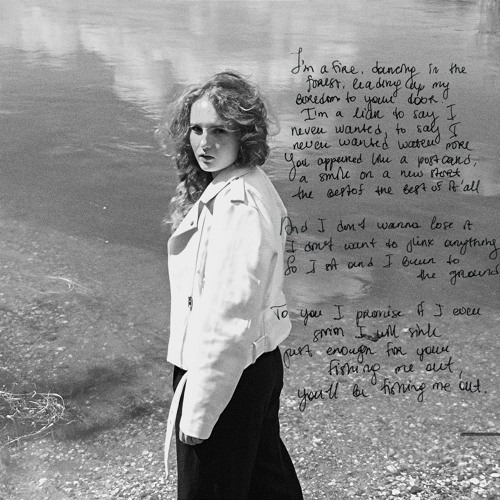 I'm a fire, dancing in the
forest, leading up my
boredom to your door
I'm a liar to say I
never wanted, to say I
never wanted water more
You appeared like a postcard,
a smile on a new street
the best of the best of it all
And I don't wanna lose it
I don't want to jinx anything
So I sit and I burn to
the ground
To you I promise if I ever
swim I will sink
just enough for your
fishing me out,
you'll be fishing me out.